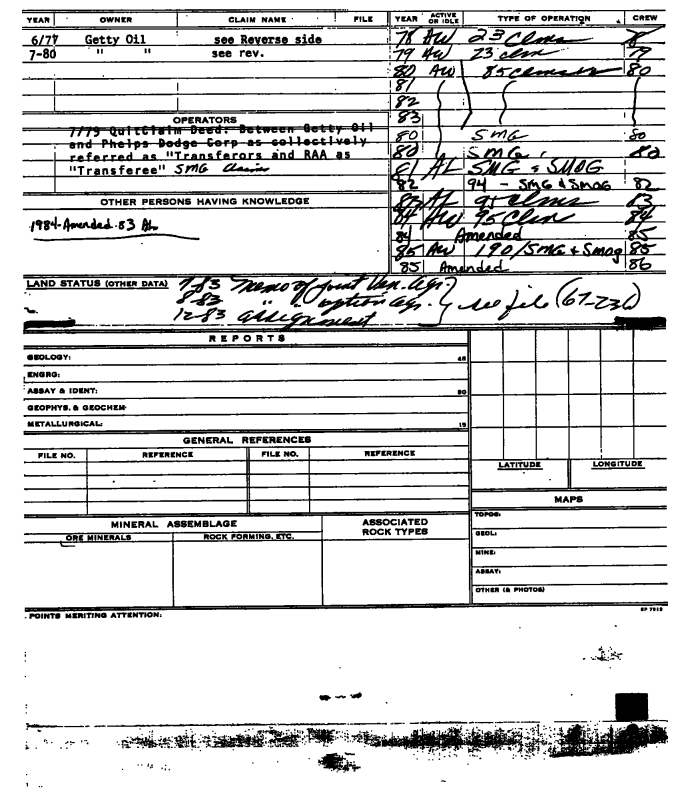 YEAR OWNER CLAIM NAME FILE YEAR ACTIVE OR IDLE TYPE OF OPERATION CREW
6/77 Getty Oil see Reverse side
7-80 " " see rev.
78 AW 23 Clms
79 AW 23 clm 79
80 AW 85 Clms 80
81
82
83
80 SMG 80
80 SMG 80
81 AL SMG & SMOG
82 94 - SMG & SMOG 82
83 AL 95 Clms 83
84 AW 95 Clm 84
84 Amended 85
85 AW 190/SMG & Smog 85
85 Amended 86
OPERATORS
7/79 QuitClaim Deed: Between Getty Oil
and Phelps Dodge Corp as collectively
referred as "Transferors and RAA as
"Transferee" SMG Claims
OTHER PERSONS HAVING KNOWLEDGE
1984-Amended.83 AL
LAND STATUS (OTHER DATA) 7-83 memo of joint Ven. Agr.
8-83 " " option agr. } see file (67-23C)
12-83 assignment
REPORTS
GEOLOGY: 45
ENGRG:
ASSAY & IDENT: 30
GEOPHYS. & GEOCHEM
METALLURGICAL: 15
GENERAL REFERENCES
FILE NO. REFERENCE FILE NO. REFERENCE
LATITUDE LONGITUDE
MAPS
TOPOG:
GEOL:
MINE:
ASSAY:
OTHER (& PHOTOS)
MINERAL ASSEMBLAGE ASSOCIATED ROCK TYPES
ORE MINERALS ROCK FORMING, ETC.
POINTS MERITING ATTENTION: